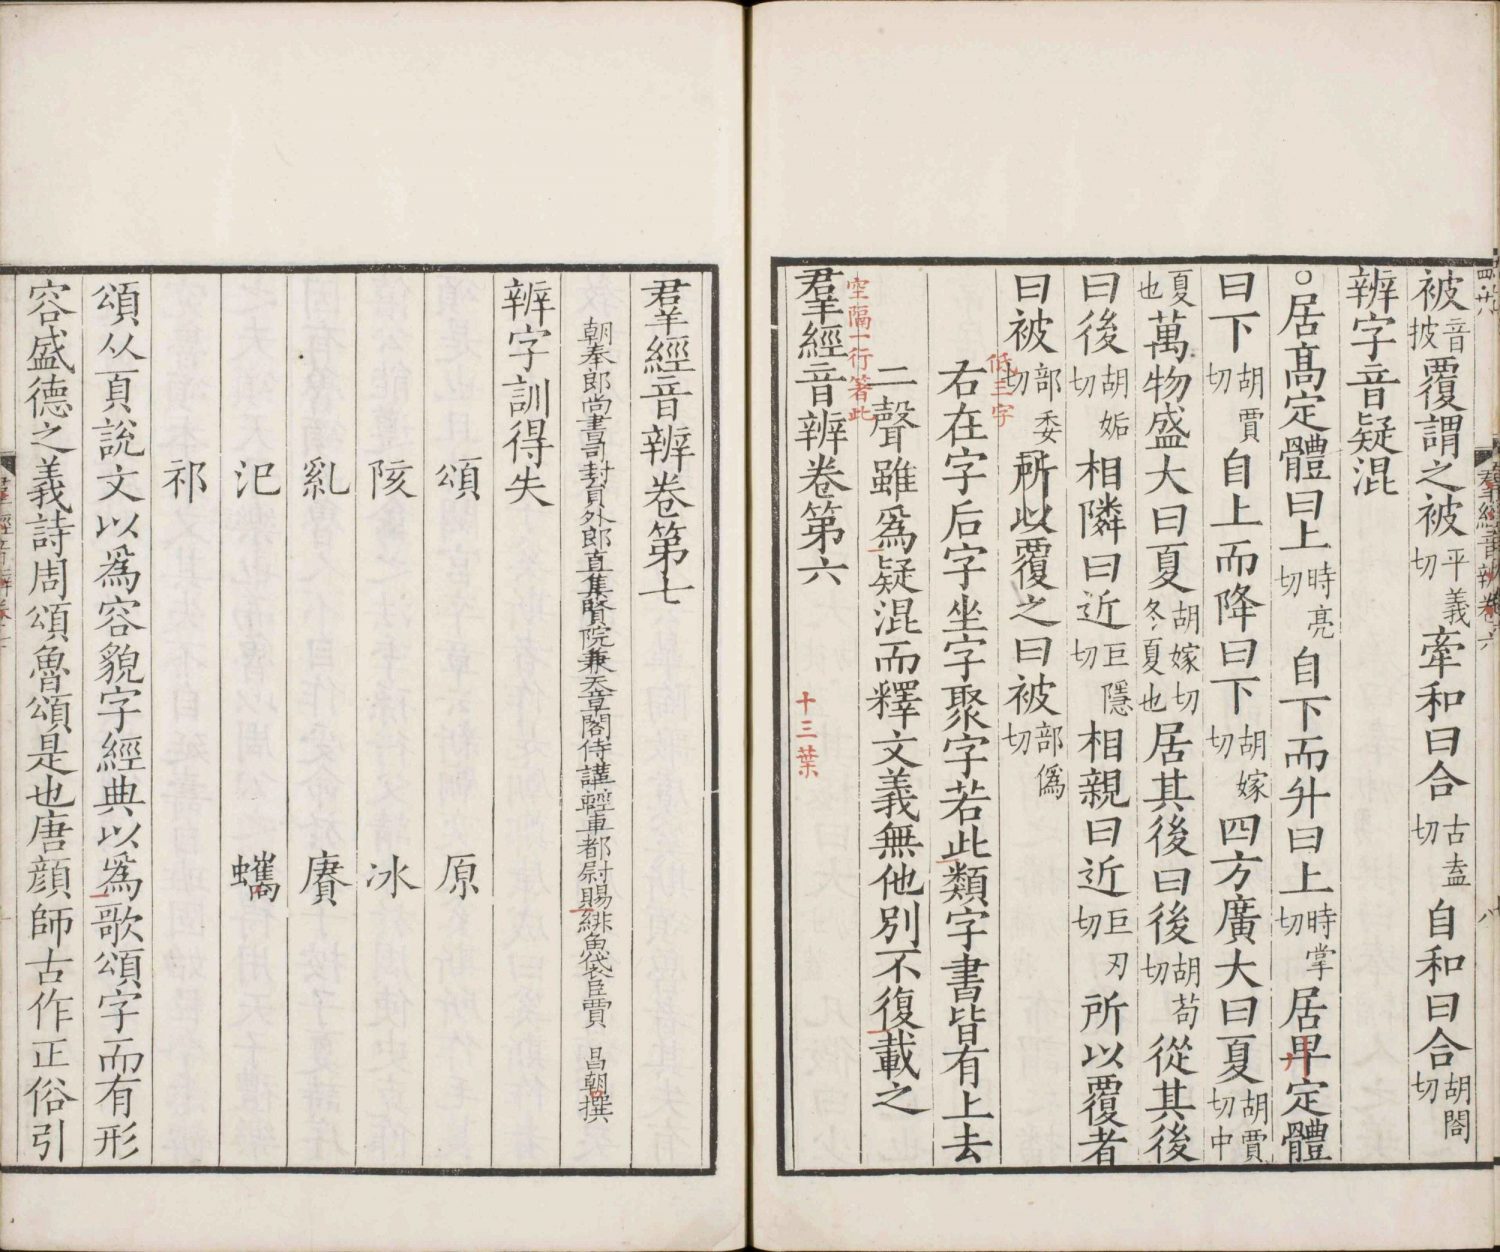 被音披覆謂之被平義切牽和曰合古盍切自和曰合胡閤切
辨字音疑混
○居高定體曰上時亮切自下而升曰上時掌切居卑定體
曰下胡賈切自上而降曰下胡嫁切四方廣大曰夏胡賈切中
夏也萬物盛大曰夏胡嫁切冬夏也居其後曰後胡苟切從其後
曰後胡姤切相隣曰近巨隱切相親曰近巨刃切所以覆者
曰被部委切所以覆之曰被部僞切
低三字
右在字后字坐字聚字若此類字書皆有上去
二聲雖爲疑混而釋文義無他別不復載之
空隔一行著此
羣經音辨卷第六
十三葉
羣經音辨卷第七
朝奉郎尚書司封員外郎直集賢院兼天章閣侍講輕車都尉賜緋魚袋臣賈 昌朝撰
辨字訓得失
頌 原
陔 冰
亂 賡
汜 蠵
祁
頌从頁說文以爲容貌字經典以爲歌頌字而有形
容盛德之義詩周頌魯頌是也唐顔師古作正俗引